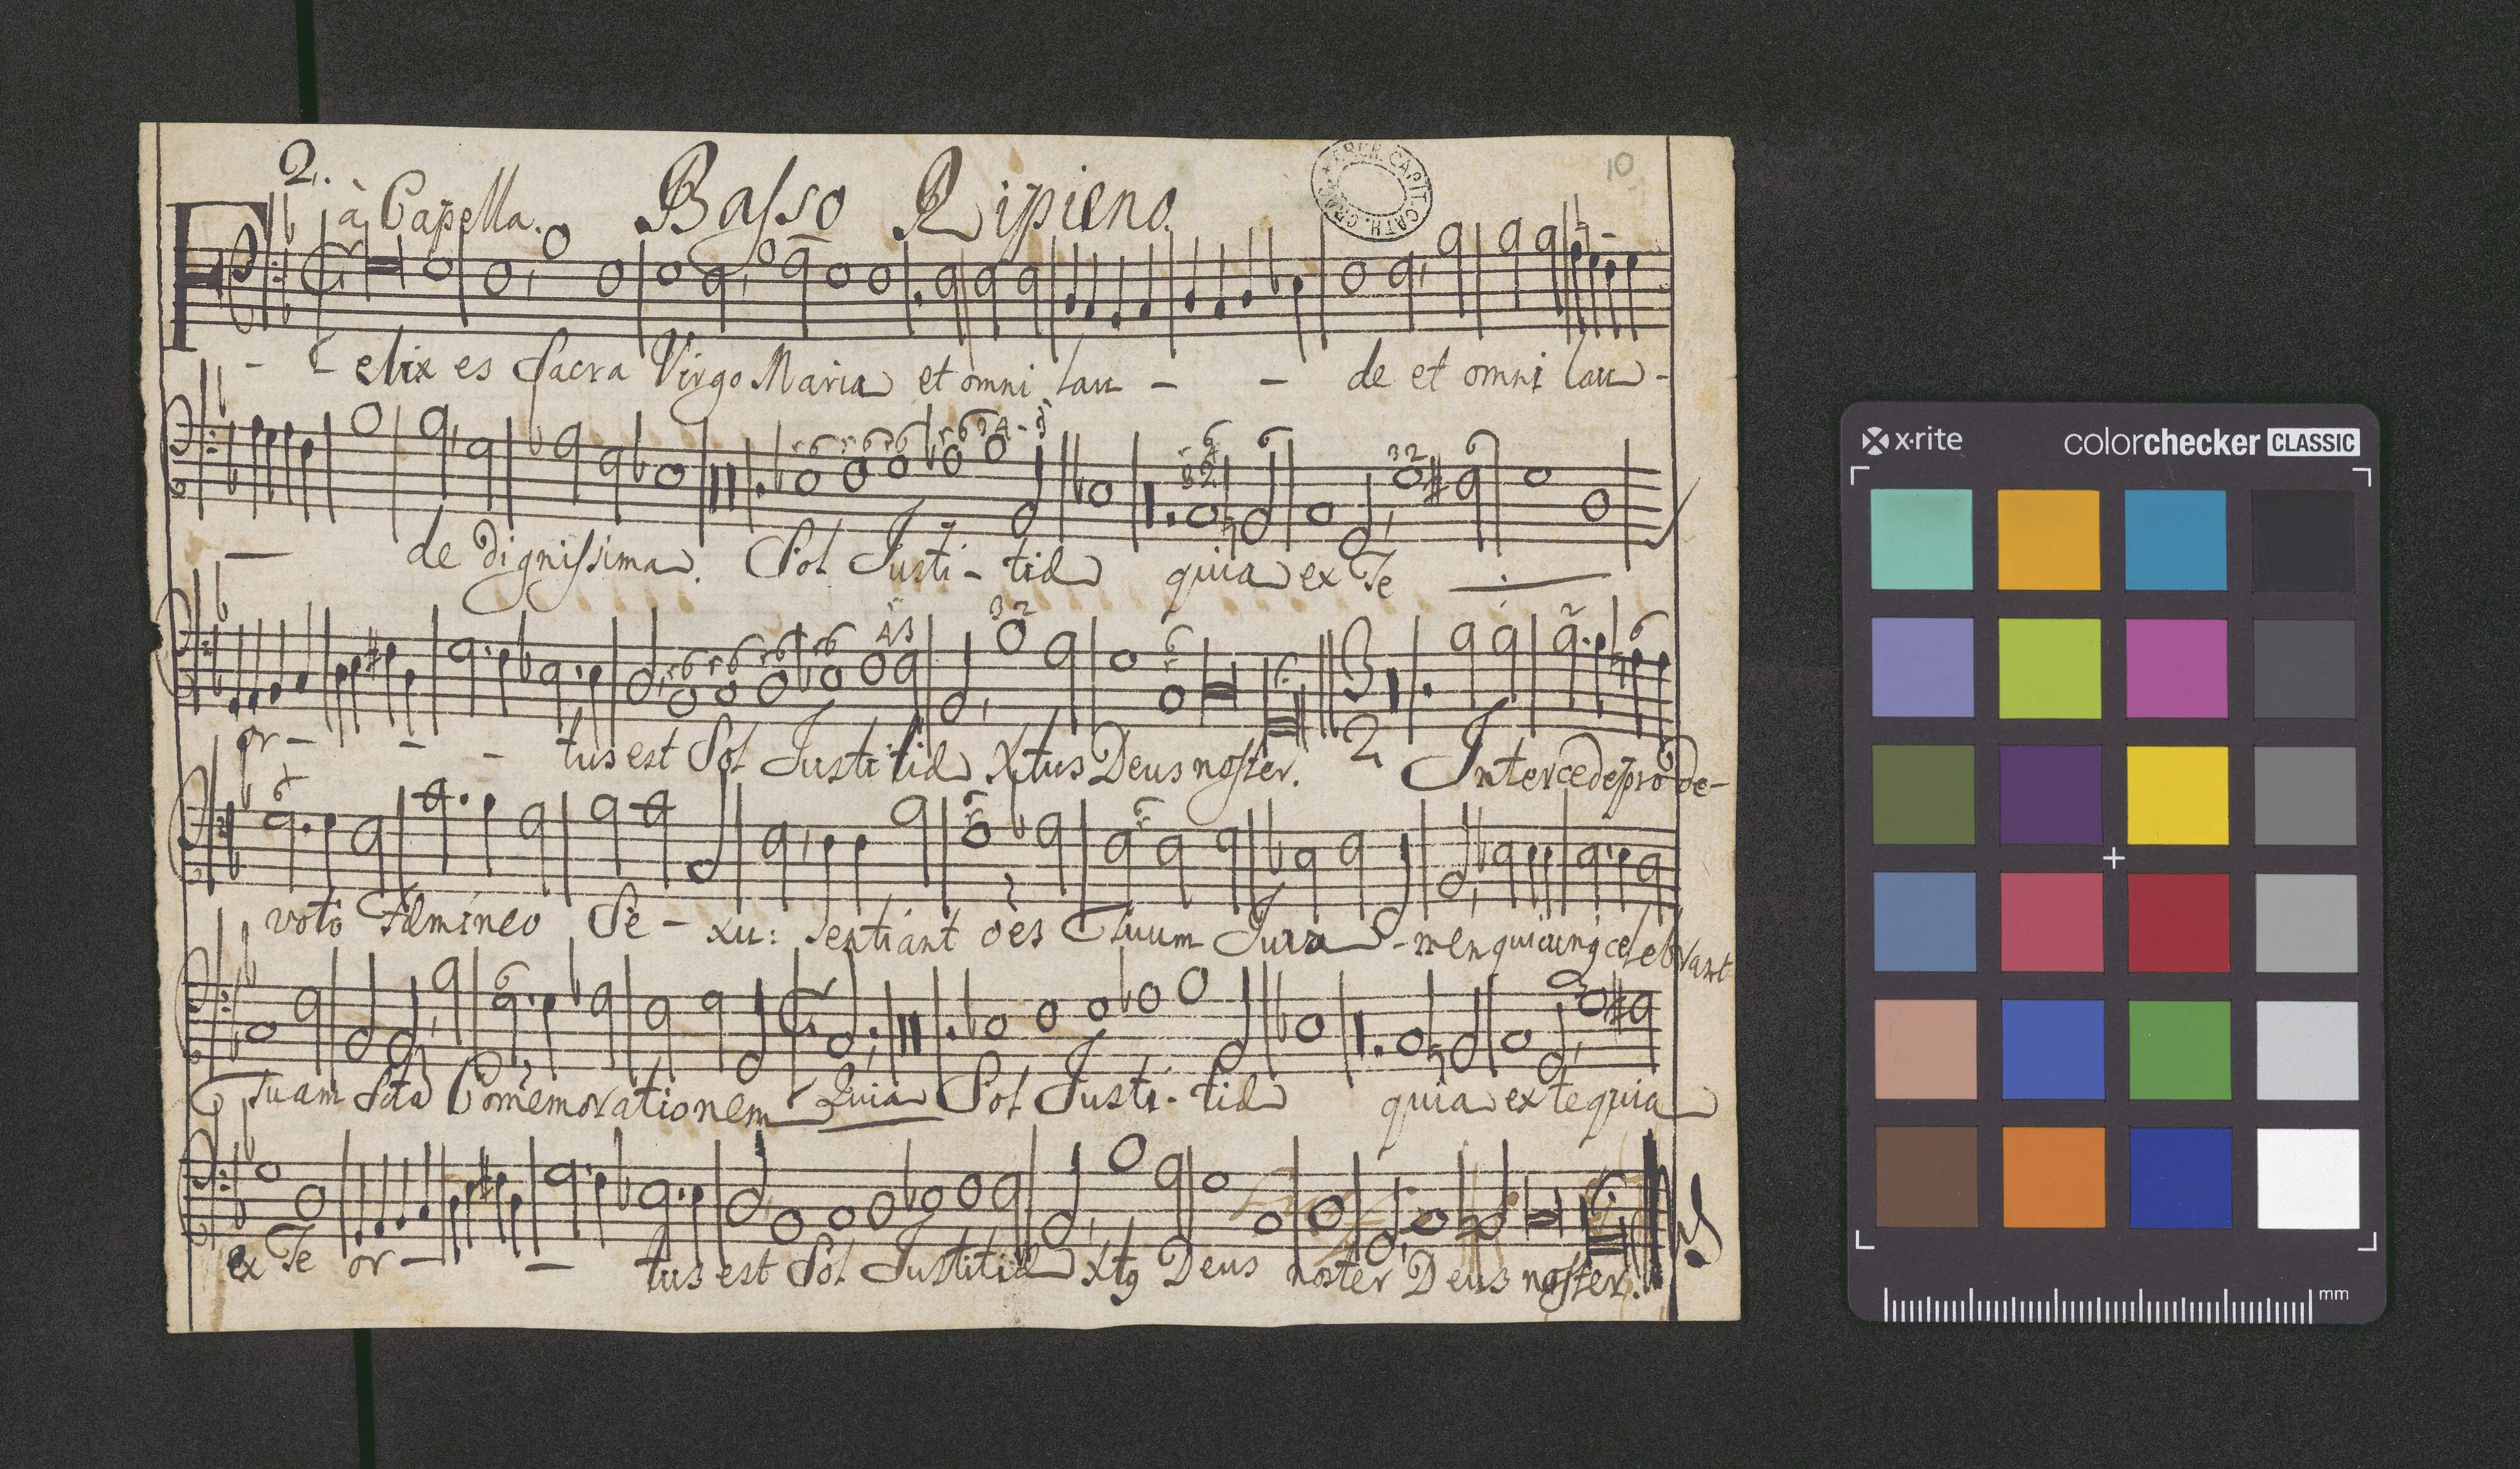 2. à Capella. Basso Ripieno.
10
Felix es Sacra Virgo Maria et omni lau - - de et omni lau -
- de dignissima. Sol Justi - tiæ quia ex Te
or - - - tus est Sol Justitiæ Xtus Deus noster. Intercede pro de-
voto fæmineo Se - xu: sentiant oẽs Tuum Juva - men quicunq celebrant
Tuam Sctã Com̃emorationem Quia Sol Justi - tiæ quia ex te quia
ex Te or - - tus est Sol Justitiæ Xtq Deus noster Deus noster.
x-rite
colorchecker CLASSIC
mm